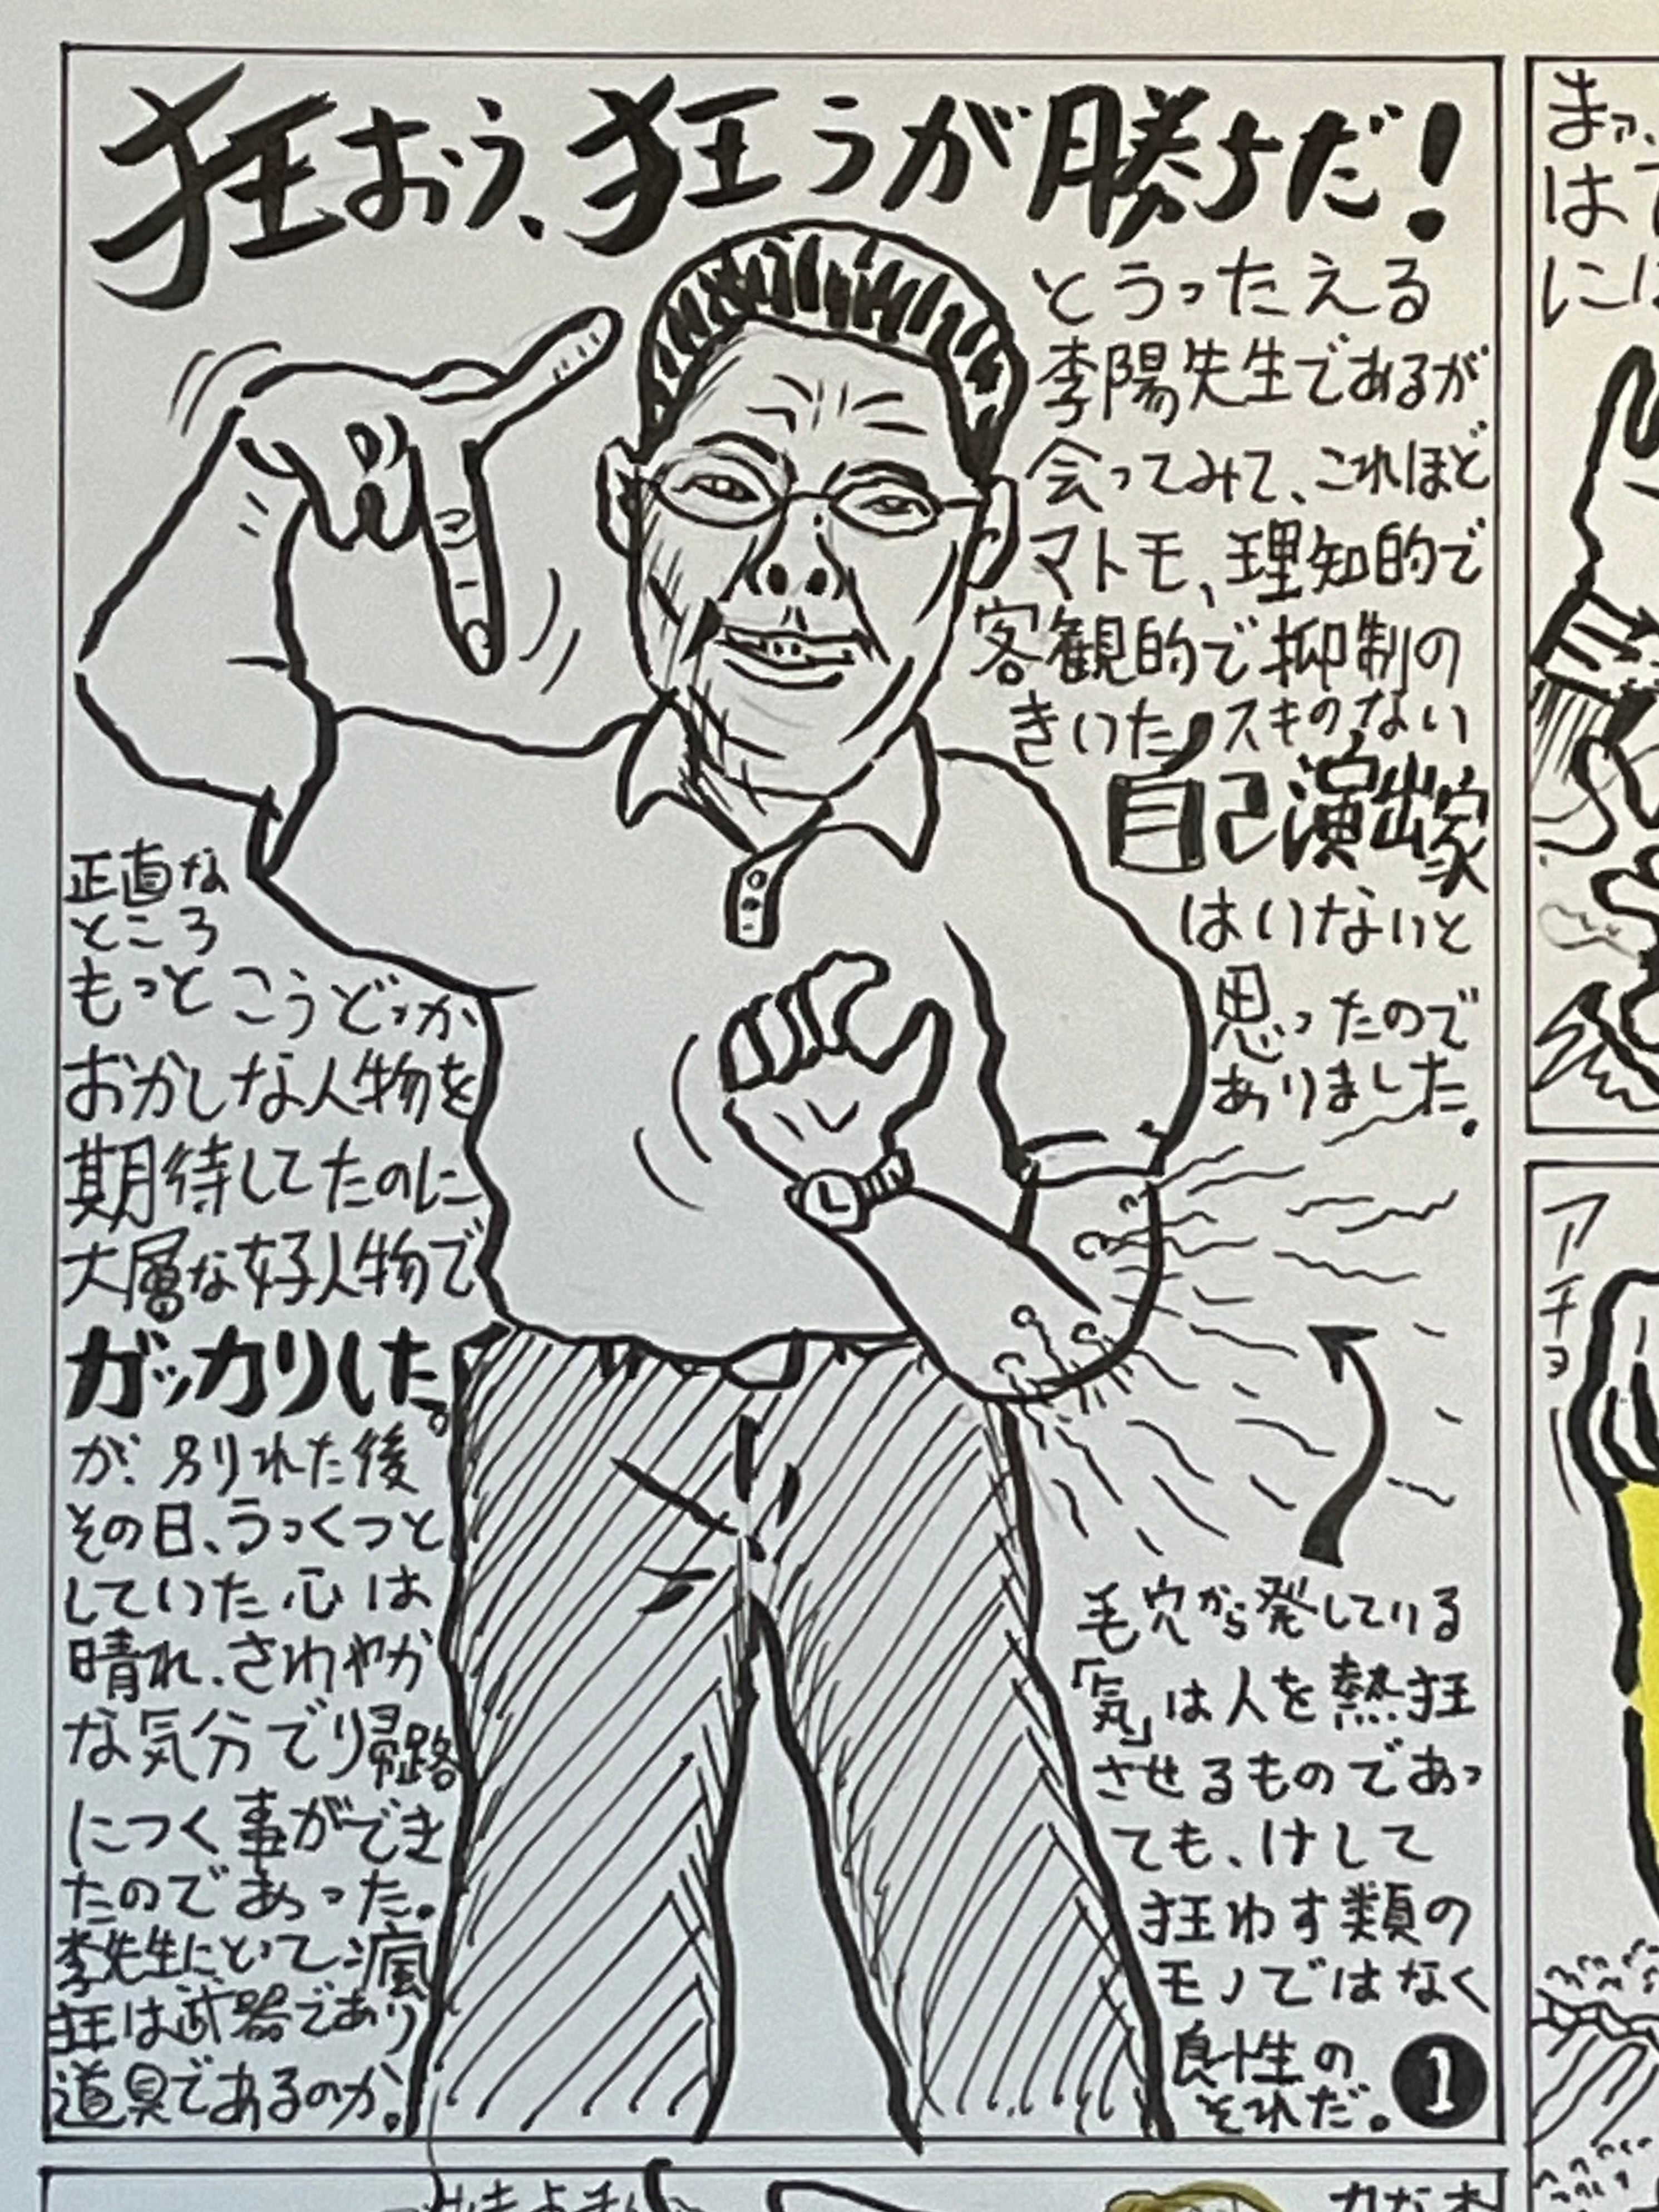 狂おう、狂うが勝ちだ!
とうったえる
李陽先生であるが
会ってみて、これほど
マトモ、理知的で
客観的で抑制の
きいた、スキのない
自己演出家
はいないと
思ったので
ありました。
正直な
ところ
もっとこうどっか
おかしな人物を
期待してたのに
大層な好人物で
ガッカリした。
が、別れた後
その日、うっくつと
していた心は
晴れ、さわやか
な気分で帰路
につく事ができ
たのであった。
李先生にとって瘋
狂は武器であり
道具であるのか。
毛穴から発している
「気」は人を熱狂
させるものであっ
ても、けして
狂わす類の
モノではなく
良性の
それだ。
1
まァ、
は
に
アチョ